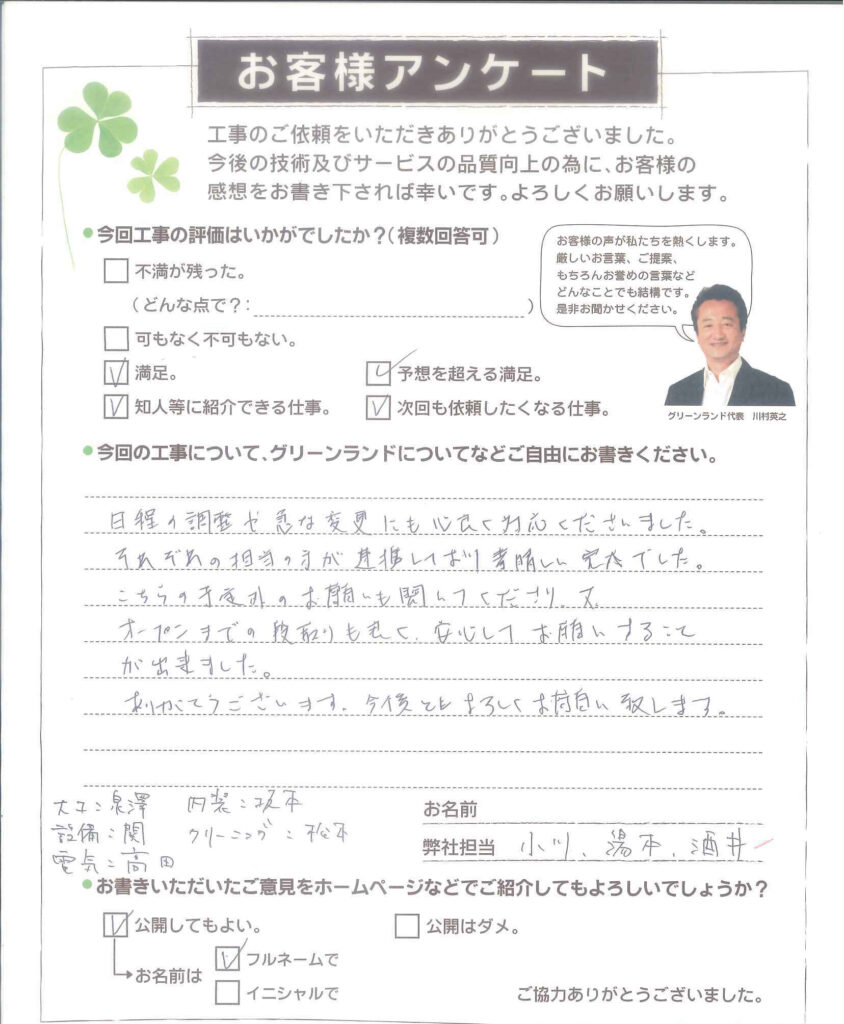 お客様アンケート
工事のご依頼をいただきありがとうございました。
今後の技術及びサービスの品質向上の為に、お客様の
感想をお書き下されば幸いです。よろしくお願いします。
今回工事の評価はいかがでしたか？（複数回答可）
不満が残った。
（どんな点で？：　　　）
可もなく不可もない。
満足。
予想を超える満足。
知人等に紹介できる仕事。
次回も依頼したくなる仕事。
お客様の声が私たちを熱くします。
厳しいお言葉、ご提案、
もちろんお誉めの言葉など
どんなことでも結構です。
是非お聞かせください。
グリーンランド代表　川村英之
今回の工事について、グリーンランドについてなどご自由にお書きください。
日程の調整や急な変更にも心良く対応くださいました。
それぞれの担当の方が連携しており素晴しい完成でした。
こちらの予定外のお願いも聞いてくださり、又
オープンまでの段取りも良く、安心してお願いすること
が出来ました。
ありがとうございます。今後ともよろしくお願い致します。
大工：泉澤　内装：坂本
設備：関　クリーニング：松本
電気：高田
お名前
弊社担当　小川、湯本、酒井
お書きいただいたご意見をホームページなどでご紹介してもよろしいでしょうか？
公開してもよい。
公開はダメ。
お名前は
フルネームで
イニシャルで
ご協力ありがとうございました。